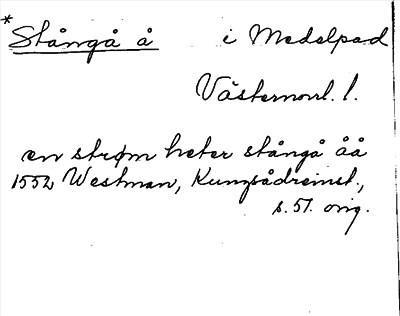 * Stångå å i Medelpad
Västernorrl. l.
en strøm heter stångå åå
1552 Westman, Kungsådreinst.,
s. 51. orig.